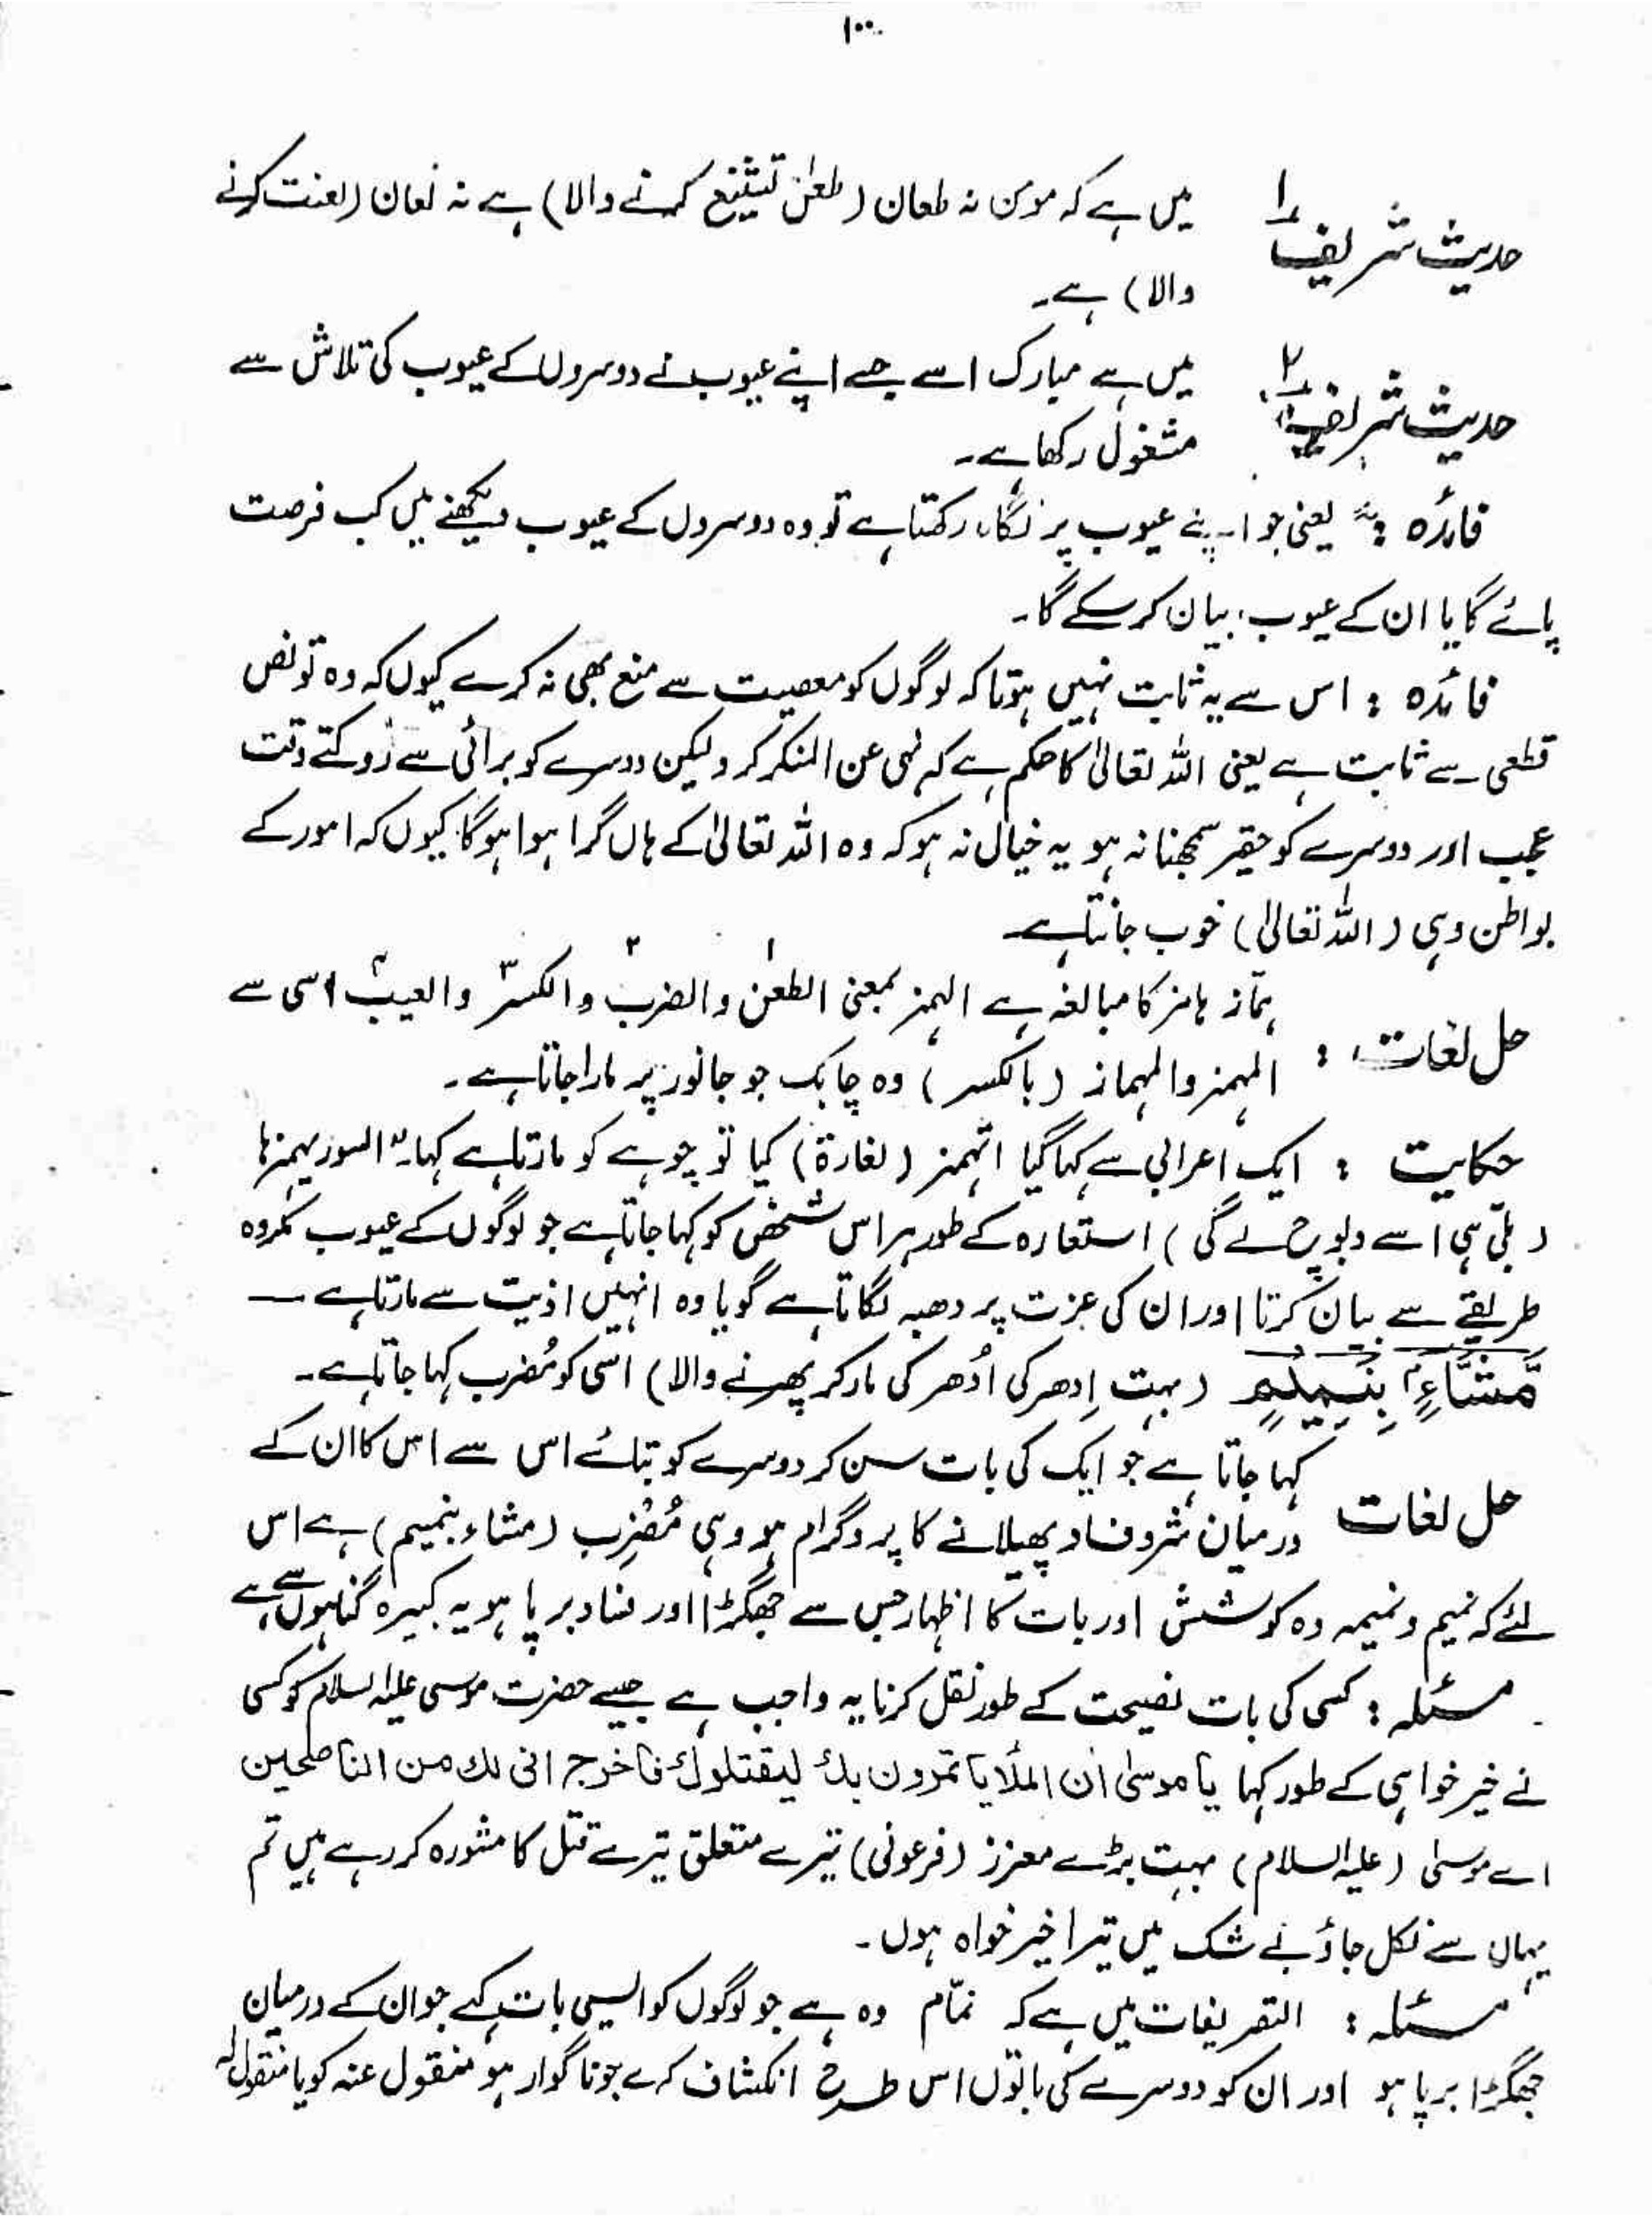 ۱۰۰
حدیث شریف ۱ میں ہے کہ مومن نہ طعان (طعن تشنیع کرنے والا) ہے نہ لعان (لعنت کرنے
والا) ہے۔
حدیث شریف ۲ میں ہے مبارک اسے جسے اپنے عیوب نے دوسروں کے عیوب کی تلاش سے
مشغول رکھا ہے۔
فائدہ : یعنی جو اپنے عیوب پر نگاہ رکھتا ہے تو وہ دوسروں کے عیوب دیکھنے میں کب فرصت
پائے گا یا ان کے عیوب بیان کر سکے گا۔
فائدہ : اس سے یہ ثابت نہیں ہوتا کہ لوگوں کو معصیت سے منع بھی نہ کرے کیوں کہ وہ تو نص
قطعی سے ثابت ہے یعنی اللہ تعالیٰ کا حکم ہے کہ نہی عن المنکر کرو لیکن دوسرے کو برائی سے روکتے وقت
عجب اور دوسرے کو حقیر سمجھنا نہ ہو یہ خیال نہ ہو کہ وہ اللہ تعالیٰ کے ہاں گرا ہوا ہوگا کیوں کہ امور کے
بواطن وہی (اللہ تعالیٰ) خوب جانتا ہے
حل لغات : ہمّاز ہامز کا مبالغہ ہے الہمز بمعنی الطعن۱ والضرب۲ والکسر۳ والعیب۴ اسی سے
المہمز والمہماز (بالکسر) وہ چابک جو جانور پر مارا جاتا ہے۔
حکایت : ایک اعرابی سے کہا گیا اتہمز (لفارۃ) کیا تو چوہے کو مارتا ہے کہا۔ السور یہمزہا
(بلّی ہی اسے دبوچ لے گی) استعارہ کے طور ہر اس شخص کو کہا جاتا ہے جو لوگوں کے عیوب مکروہ
طریقے سے بیان کرتا اور ان کی عزت پر دھبہ لگاتا ہے گویا وہ انہیں اذیت سے مارتا ہے —
مَّشَّآءٍۭ بِنَمِیْمٍ (بہت اِدھر کی اُدھر کی مار کر پھرنے والا) اسی کو مُضرب کہا جاتا ہے۔
حل لغات کہا جاتا ہے جو ایک کی بات سن کر دوسرے کو بتائے اس سے اس کا ان کے
درمیان شروفساد پھیلانے کا پروگرام ہو وہی مُضْرِب (مشاء بنمیم) ہے اس
لئے کہ نمیم و نمیمہ وہ کوشش اور بات کا اظہار جس سے جھگڑا اور فساد برپا ہو یہ کبیرہ گناہوں سے ہے
مسئلہ : کسی کی بات نصیحت کے طور نقل کرنا یہ واجب ہے جیسے حضرت موسی علیہ السلام کو کسی
نے خیر خواہی کے طور کہا یا موسیٰ ان الملأ یا تمرون بک لیقتلوک فاخرج انی لک من الناصحین
اے موسیٰ (علیہ السلام) بہت بڑے معزز (فرعونی) تیرے متعلق تیرے قتل کا مشورہ کر رہے ہیں تم
یہاں سے نکل جاؤ بے شک میں تیرا خیر خواہ ہوں۔
مسئلہ : التعریفات میں ہے کہ نمّام وہ ہے جو لوگوں کو ایسی بات کہے جو ان کے درمیان
جھگڑا برپا ہو اور ان کو دوسرے کی باتوں اس طرح انکشاف کرے جو ناگوار ہو منقول عنہ کو یا منقول لہ